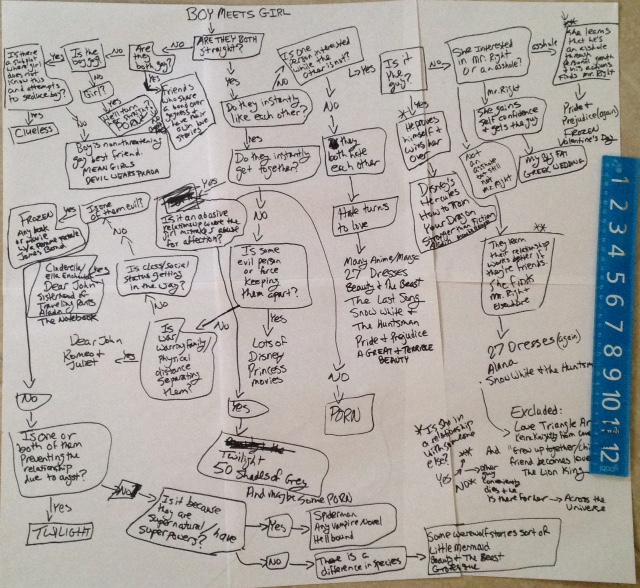 BOY MEETS GIRL
ARE THEY BOTH
straight?
NO
Are
they
both
gay?
NO
Is the
boy gay?
NO
Girl?
Is there
a subplot where girl
does not
know this
and attempts
to seduce boy?
Yes
Clueless
Boy is non-threatening
gay best friend.
MEAN GIRLS
DEVIL WEARS PRADA
Friends
who share
a bond over
stories
Yes
Do they instantly
like each other?
Yes
Do they instantly
get together?
Yes
Is it an abusive
relationship where the
girl mistakes abuse
for affection?
NO
Is one
person interested
while the
other isn't?
Yes
NO
they
both hate
each other
Hate turns
to love
Many Anime/Manga
27 Dresses
Beauty & The Beast
The Last Song
Snow White &
The Huntsman
Pride & Prejudice
A GREAT & TERRIBLE
BEAUTY
NO
PORN
Is it
the guy?
* Yes
He proves
himself &
wins her
over
Disney's
Hercules
How to Train
Your Dragon
Stranger than fiction
NO
She interested
in Mr. Right
or an asshole?
asshole
**
She learns
that he's
an asshole
through
finds Mr. Right
Pride &
Prejudice (again)
Frozen
Valentine's Day
Mr. Right
She gains
self confidence
& gets the guy
My Big Fat
GREEK WEDDING
Not
a asshole
but still
not
Mr. Right
**
They learn
their relationship
works better if
they're friends.
She finds
Mr. Right
elsewhere
27 Dresses (again)
Alana
Snow White & the Huntsm
Is one
of them evil?
Yes
FROZEN
Any book
or movie
James Bond
NO
Is class/social
status getting
in the way?
Yes
Cinderella/
Ella Enchanted
Dear John
Sisterhood of
Traveling Pants
The Notebook
NO
Is some
evil person
or force
keeping
them apart?
Yes
Lots of
Disney
Princess
movies
NO
Is
war
warring family
physical
distance
separating
them?
Yes
Dear John
Romeo &
Juliet
NO
Is one or
both of them
Preventing the
relationship
due to angst?
Yes
TWILIGHT
Yes
Twilight
50 Shades of Grey
And maybe some PORN
NO
Is it because
they are
supernatural/have
superpowers?
Yes
Spiderman
Any Vampire Novel
Hellbound
NO
There is a
difference in species
Some werewolf stories sort of
Little Mermaid
Beauty & The Beast
* Is she in
a relationship
with someone
else?
Yes **
NO *
Excluded:
Love Triangle
And "Grow up together/
friend becomes
The Lion King
other
guy
conveniently
dies & he
is there for her → Across the
Universe
1 2 3 4 5 6 7 8 9 10 11 12